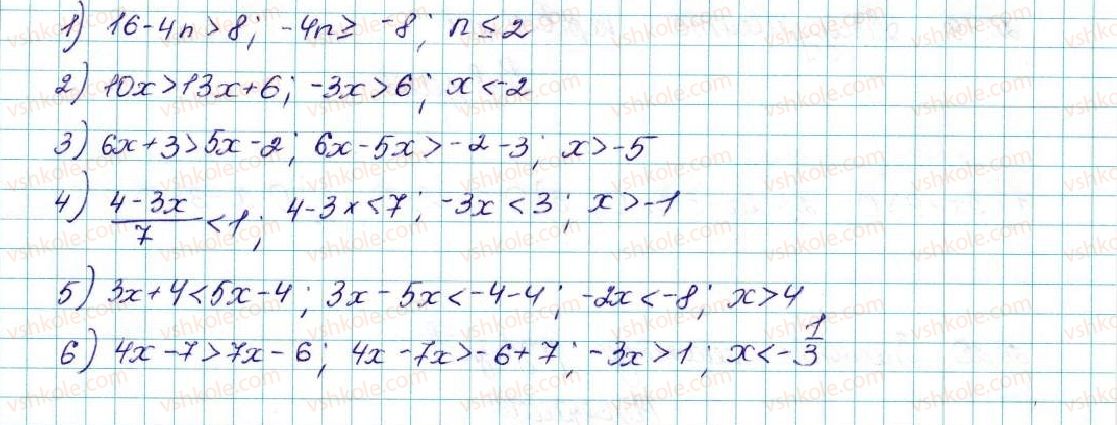 1) 16-4n>8; -4n≥ -8; n≤2
2) 10x>13x+6; -3x>6; x<-2
3) 6x+3>5x-2; 6x-5x>-2-3; x>-5
4) (4-3x)/7<1; 4-3x<7; -3x<3; x>-1
5) 3x+4<5x-4; 3x-5x<-4-4; -2x<-8; x>4
6) 4x-7>7x-6; 4x-7x>-6+7; -3x>1; x<-1/3
vshkole.com